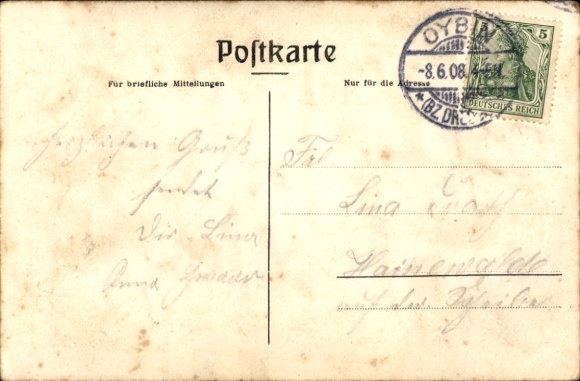 Postkarte
Für briefliche Mitteilungen
Nur für die Adresse
OYBIN
-8.6.08.
*(BZ. DRES
5
DEUTSCHES REICH
Herzlichen Gruß
sendet
Dir Liner
Anna
Frl
Lina
Hainewalde
auf der Scheibe